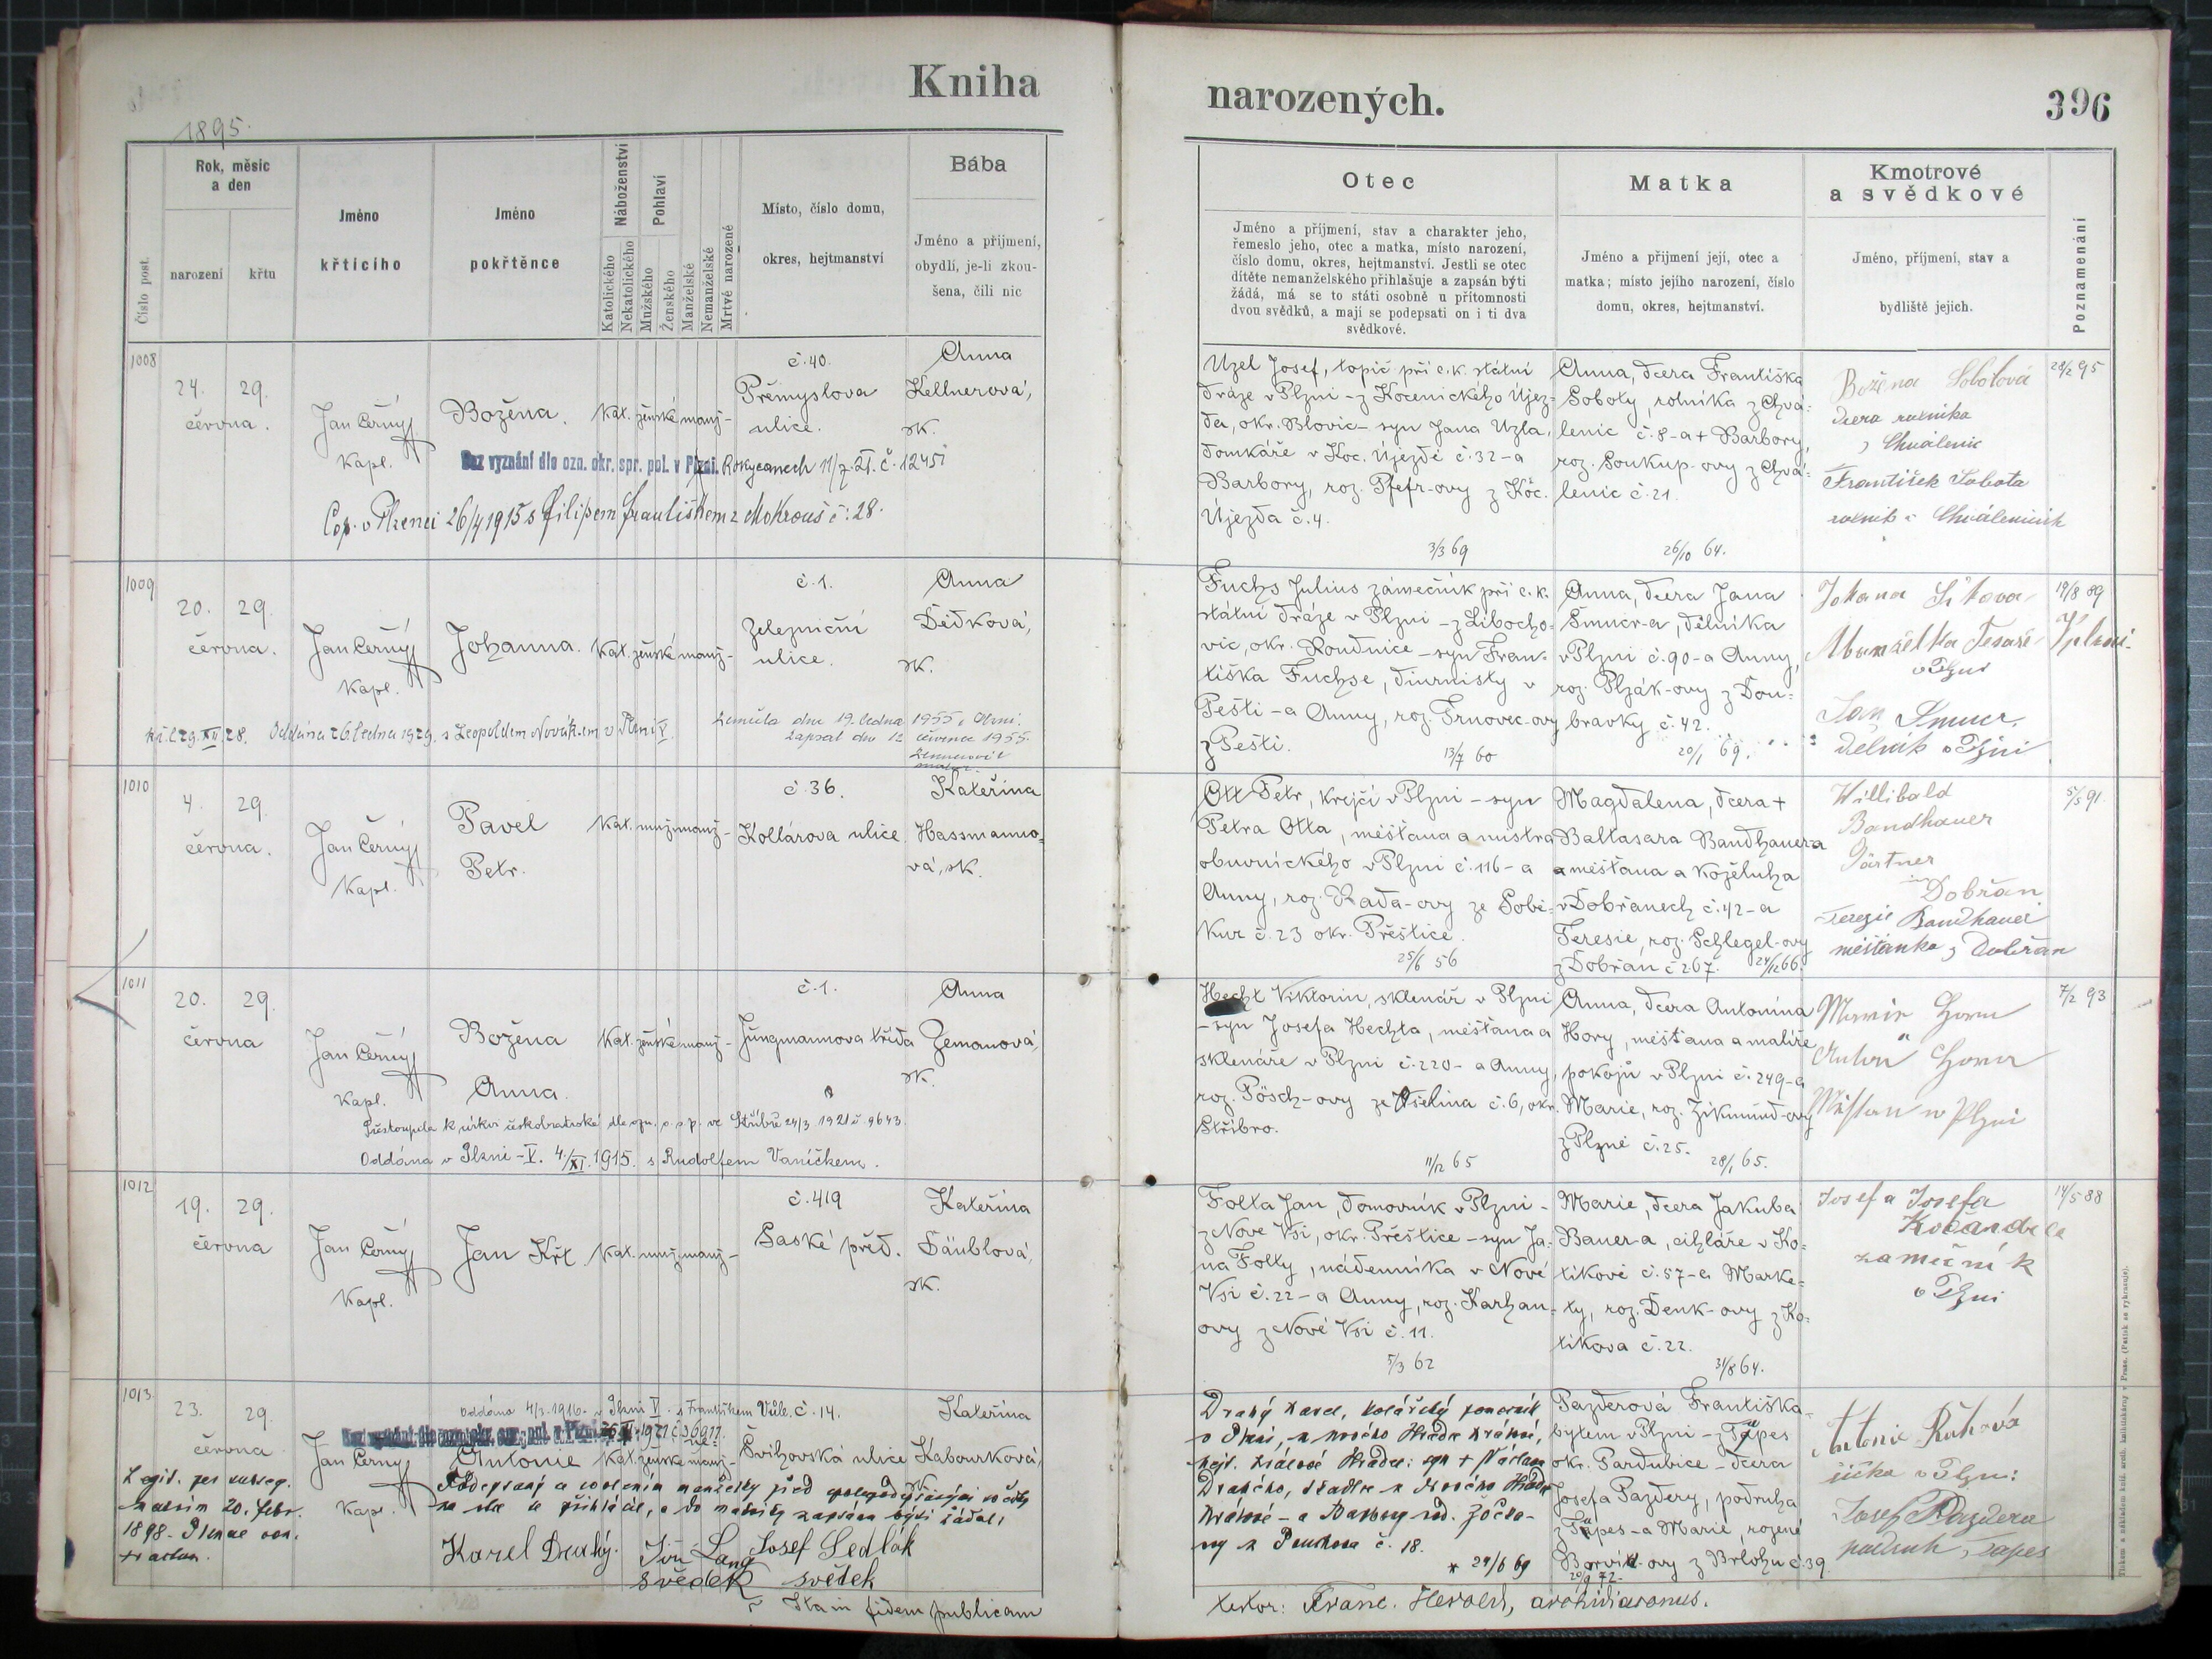 Kniha
narozených.
396
1895.
Číslo post.
Rok, měsíc
a den
narození
křtu
Jméno
křtícího
Jméno
pokřtěnce
Náboženství
Katolického
Nekatolického
Pohlaví
Mužského
Ženského
Manželské
Nemanželské
Mrtvé narozené
Místo, číslo domu,
okres, hejtmanství
Bába
Jméno a přijmení,
obydlí, je-li zkou-
šena, čili nic
Otec
Jméno a příjmení, stav a charakter jeho,
řemeslo jeho, otec a matka, místo narození,
číslo domu, okres, hejtmanství. Jestli se otec
dítěte nemanželského přihlašuje a zapsán býti
žádá, má se to státi osobně u přítomnosti
dvou svědků, a mají se podepsati on i ti dva
svědkové.
Matka
Jméno a přijmení její, otec a
matka; místo jejího narození, číslo
domu, okres, hejtmanství.
Kmotrové
a svědkové
Jméno, příjmení, stav a
bydliště jejich.
Poznamenání
1008
24. 29.
června.
Jan Černý
Kapl.
Božena.
Kat. ženské manž-
č.40.
Přemyslova
ulice.
Anna
Kellnerová,
zk.
Bez vyznání dle ozn. okr. spr. pol. v Plzni. Rokycanech 11/7.21. č. 1245
Cop. v Plzenci 26/4 1915 s Filipem Františkem z Mokrouš č: 28.
Uzel Josef, topič při c.k. státní
dráze v Plzni - z Kocenického Újez-
da, okr. Blovic - syn Jana Uzla,
domkáře v Koc. Újezdě č.32 - a
Barbory, roz. Pfefr-ovy z Koc.
Újezda č.4.
3/3 69
Anna, dcera Františka
Soboty, rolníka z Chvá-
lenic č.8 - a + Barbory,
roz. Soukup-ovy z Chvá-
lenic č.21.
26/10 64.
Božena Sobotová
dcera rolníka
z Chválenic
František Sobota
rolník z Chválenicích
28/2 95
1009
20. 29.
června.
Jan Černý
Kapl.
Johanna.
Kat. ženské manž-
č.1.
Železniční
ulice.
Anna
Dědková,
zk.
kř. l. 29. XII. 28. Oddána 26 ledna 1929. s Leopoldem Novákem v Plzni V.
Zemřela dne 19. ledna 1955 v Plzni.
Zapsal dne 12 července 1955.
Fuchs Julius zámečník při c.k.
státní dráze v Plzni - z Libocho-
vic, okr. Roudnice - syn Fran-
tiška Fuchse, diurnisty v
Pešti - a Anny, roz. Trnovec-ovy
z Pešti.
13/7 60
Anna, dcera Jana
Šmucr-a, dělníka
v Plzni č.90 - a Anny,
roz. Plzák-ovy z Dou-
bravky č.42.
20/1 69.
Manželka Tesaře
v Plzni
Jan Šmucr.
dělník v Plzni
19/8 89
V plzni.
1010
4. 29.
června.
Jan Černý
Kapl.
Pavel
Petr.
Kat. muž. manž-
č.36.
Kollárova ulice.
Kateřina
Hassmanno-
vá, zk.
Ott Petr, krejčí v Plzni - syn
Petra Otta, měšťana a mistra
obuvnického v Plzni č.116 - a
Anny, roz. Rada-ovy ze Sobě-
kur č.23 okr. Přeštice.
25/6 56
Magdalena, dcera +
Baltasara Bandhauera
a měšťana a koželuha
v Dobřanech č.42 - a
Teresie, roz. Schlegel-ovy
z Dobřan č 267. 24/12 66.
Willibald
Bandhauer
Gärtner
in Dobřan
Terezie Bandhauer
měšťanka z Dobřan
5/5 91.
1011
20. 29.
června
Jan Černý
Kapl.
Božena
Anna.
Kat. ženské manž-
č.1.
Jungmannova třída
Anna
Zemanová,
zk.
Přestoupila k církvi českobratrské dle ozn. o. s. p. ve Stříbře 24/3 1921 č. 9643.
Oddána v Plzni - V. 4./XI. 1915. s Rudolfem Vaníčkem.
Hecht Viktorin, sklenář v Plzni
- syn Josefa Hechta, měšťana a
sklenáře v Plzni č.220 - a Anny,
roz. Pösch-ovy ze Všelina č.6, okr.
Stříbro.
11/12 65
Anna, dcera Antonína
Hory, měšťana a malíře
pokojů v Plzni č.249 - a
Marie, roz. Zikmund-ovy
z Plzně č.25.
28/1 65.
Marie Hora
Anton Hora
Měšťan v Plzni
7/2 93
1012
19. 29.
června
Jan Černý
Kapl.
Jan Křt.
Kat. muž. manž-
č.419
Saské před.
Kateřina
Däublová,
zk.
Folta Jan, domovník v Plzni -
z Nové Vsi, okr. Přeštice - syn Ja-
na Folty, nádenníka v Nové
Vsi č.22 - a Anny, roz. Karhan-
ovy z Nové Vsi č.11.
5/3 62
Marie, dcera Jakuba
Bauer-a, cihláře v Ko-
tíkově č.57 - a Marke-
ty, roz. Denk-ovy z Ko-
tíkova č.22.
31/8 64.
Josef a Josefa
Kočandrle
zámečník
v Plzni
14/5 88
1013
23. 29.
června
Jan Černý
Kapl.
Oddána 4/3. 1916. v Plzni V. s Františkem
Antonie
Kat. ženské
č.14.
Švihovská ulice
Kateřina
Kabourková,
zk.
Legit. per subseq.
matrim 20. febr.
1898 - Plznae
Podepsaný se svolením manželky před spolupodepsanými svědky
Karel Druhý.
Jiří Lang
svědek
Josef Sedlák
svědek
Ita in fidem publicam
Druhý Karel, kolářský pomocník
v Plzni, z Nového Hradce Králové,
hejt. Králové Hradec: syn + Václava
Druhého,
Králové - a Barbory rod.
č. 18.
* 24/6 69
Pazderová Františka
bytem v Plzni -
okr. Pardubice - dcera
Josefa Pazdery, podruha
a Marie, rozené
z Brlohu č.39.
20/9 72.
Antonie
v Plzni
Josef Pazdera
podruh,
Franc. Herold, archidiaconus.